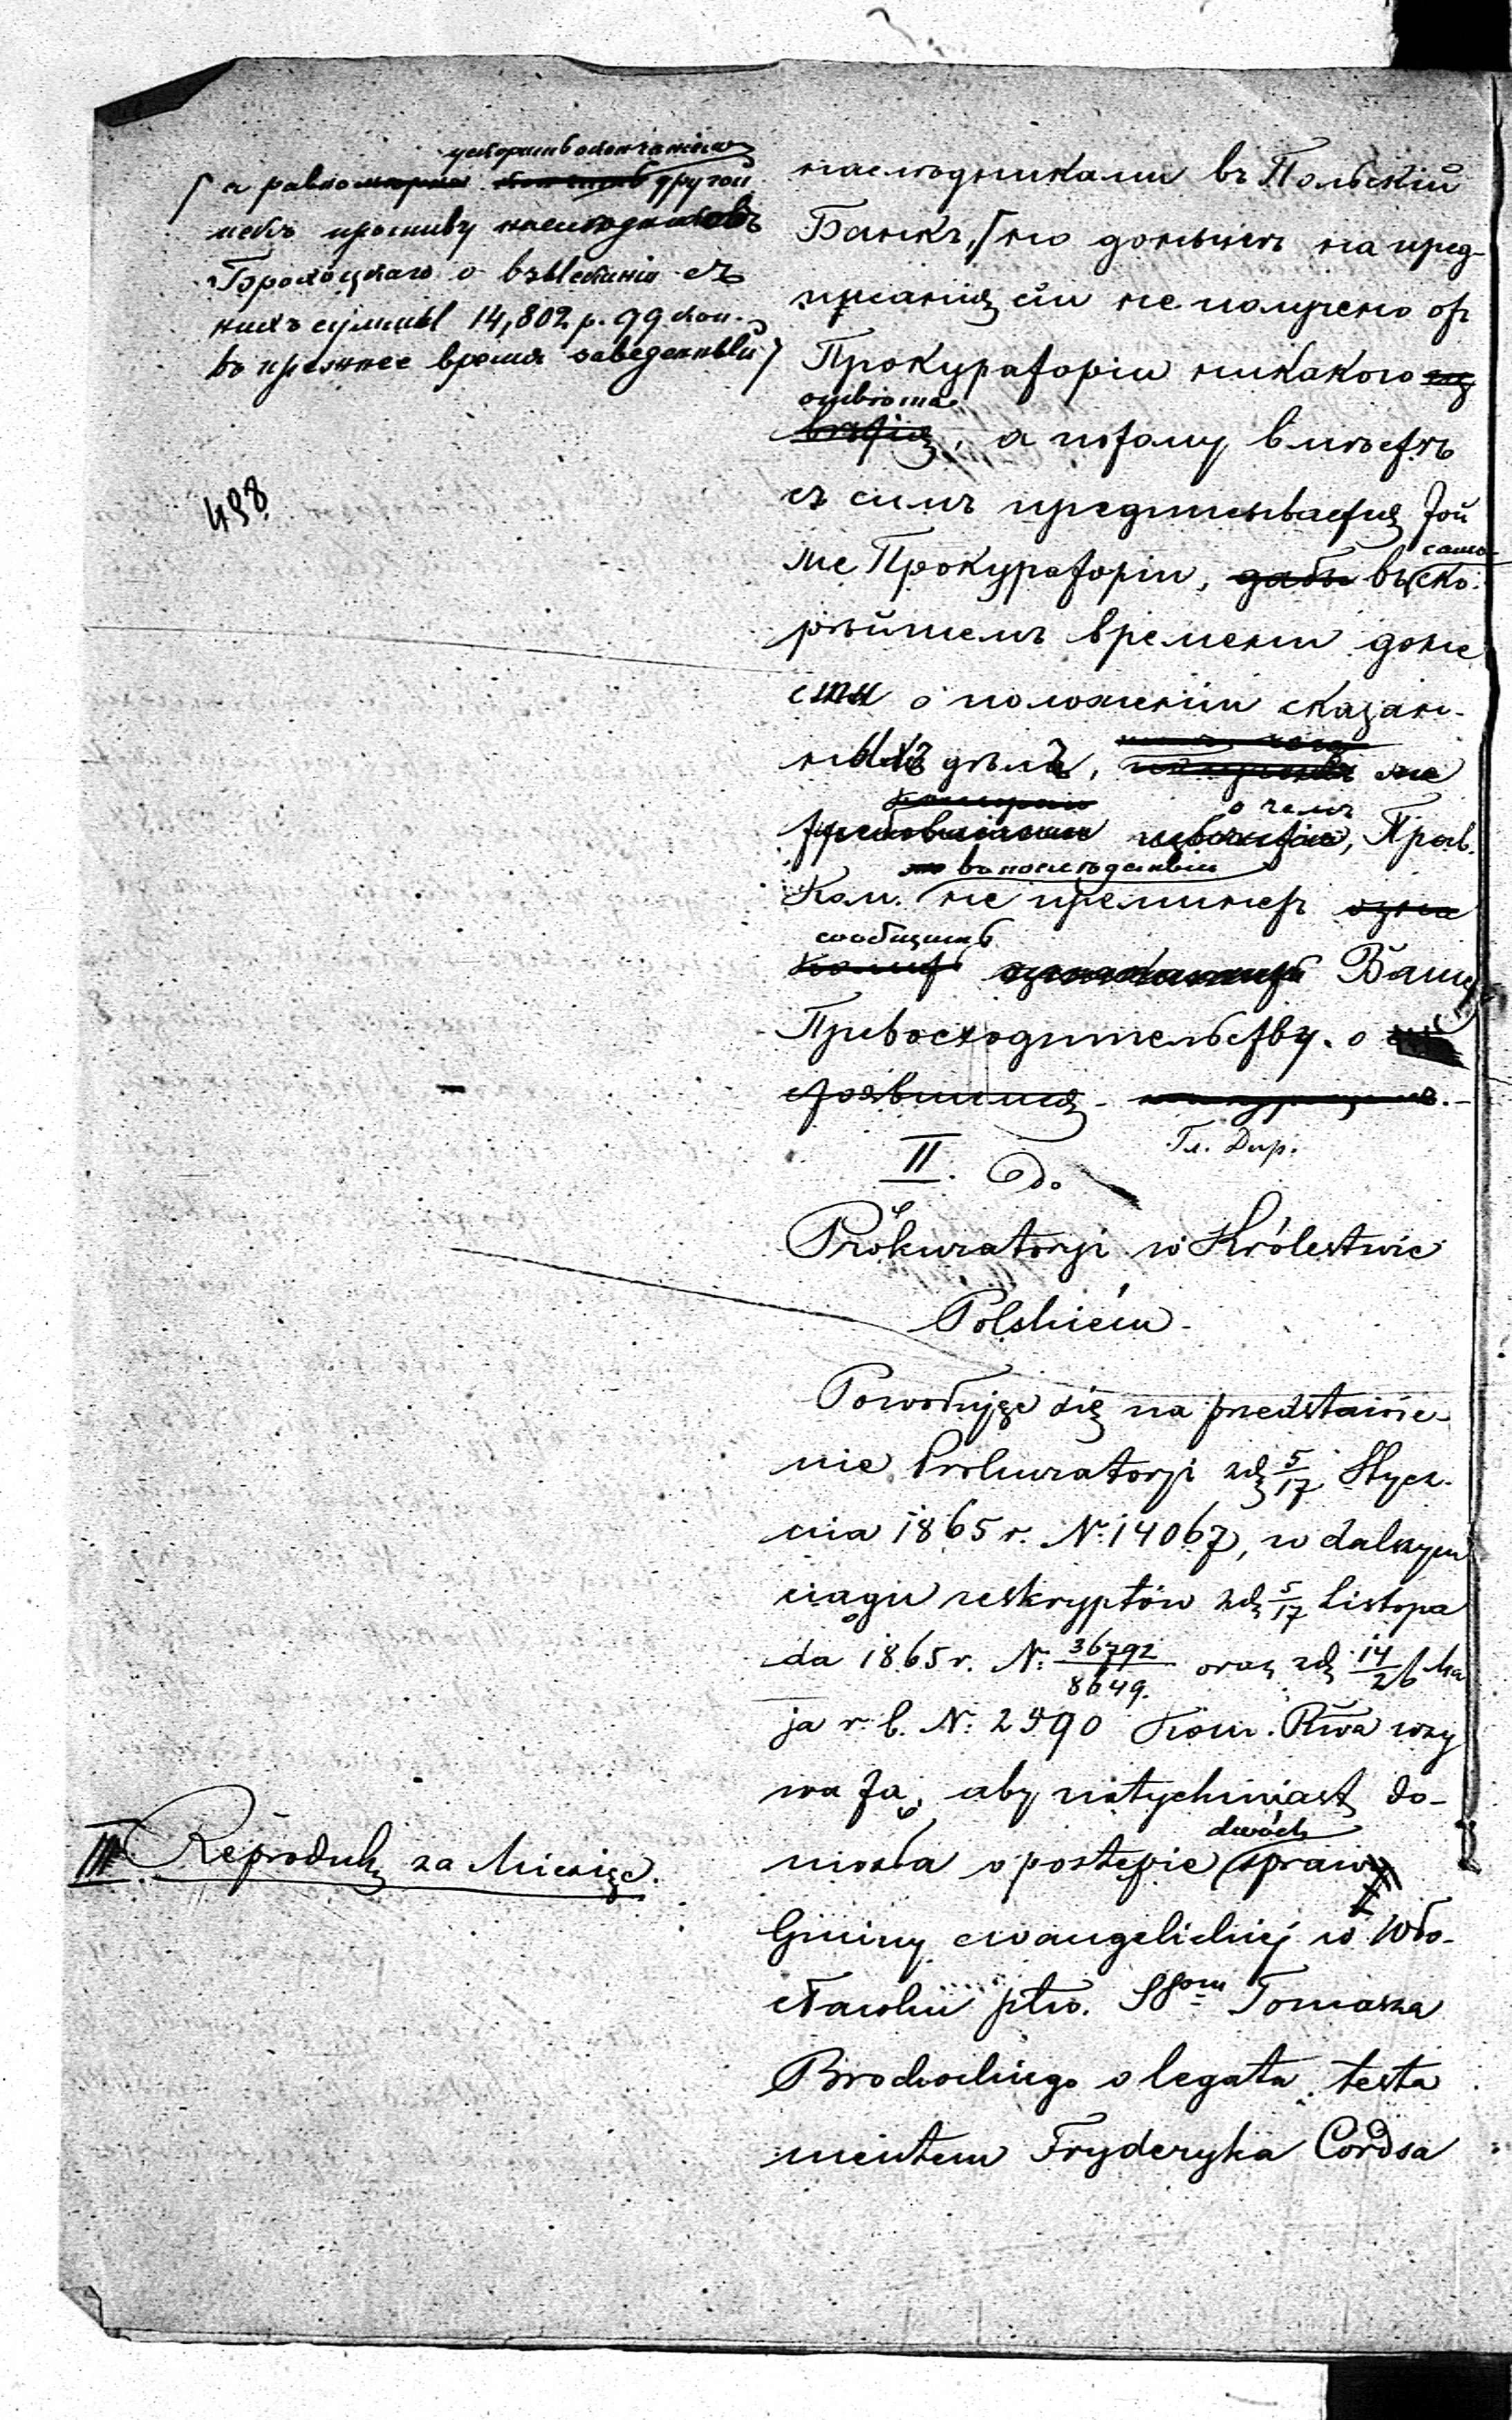 ускорить окончаніемъ
а равно другой
искъ противу наслѣдниковъ
Брохоцкаго о взысканіи съ
нихъ суммы 14,802 р. 99 коп.
въ прежнее время заведенный
498
наслѣдниками въ Польскій
Банкъ, но донынѣ на пред-
писанія сіи не получено отъ
Прокураторіи никакого
отвѣта
а потому вмѣстѣ
съ симъ предписывается той
же Прокураторіи, дабы въ само-
ско-
рѣйшемъ времени доне
сти о положеніи сказан-
ныхъ дѣлъ,
о чемъ
Прав.
въ послѣдствіи
Ком. не преминетъ
сообщить
Вашему
Превосходительству. о
Гл. Дир.
II. Do
Prokuratoryi w Królestwie
Polskiém.
Powołując się na przedstawie-
nie Prokuratoryi z d. 5/17 Stycz-
nia 1865 r. N: 14067, w dalszym
ciągu reskryptów z d. 5/17 Listopa
da 1865 r. N: 36792/8649. oraz z d. 14/26 Ma
ja r. b. N: 2590 Kom. Rwa wzy
wa Ją, aby natychmiast do-
niosła o postępie dwóch spraw
Gminy ewangelickiéj w Wło-
cławku ptko. SSom Tomasza
Brochockiego o legata testa
mentem Fryderyka Cordsa
III. Reprodukt za Miesiąc.